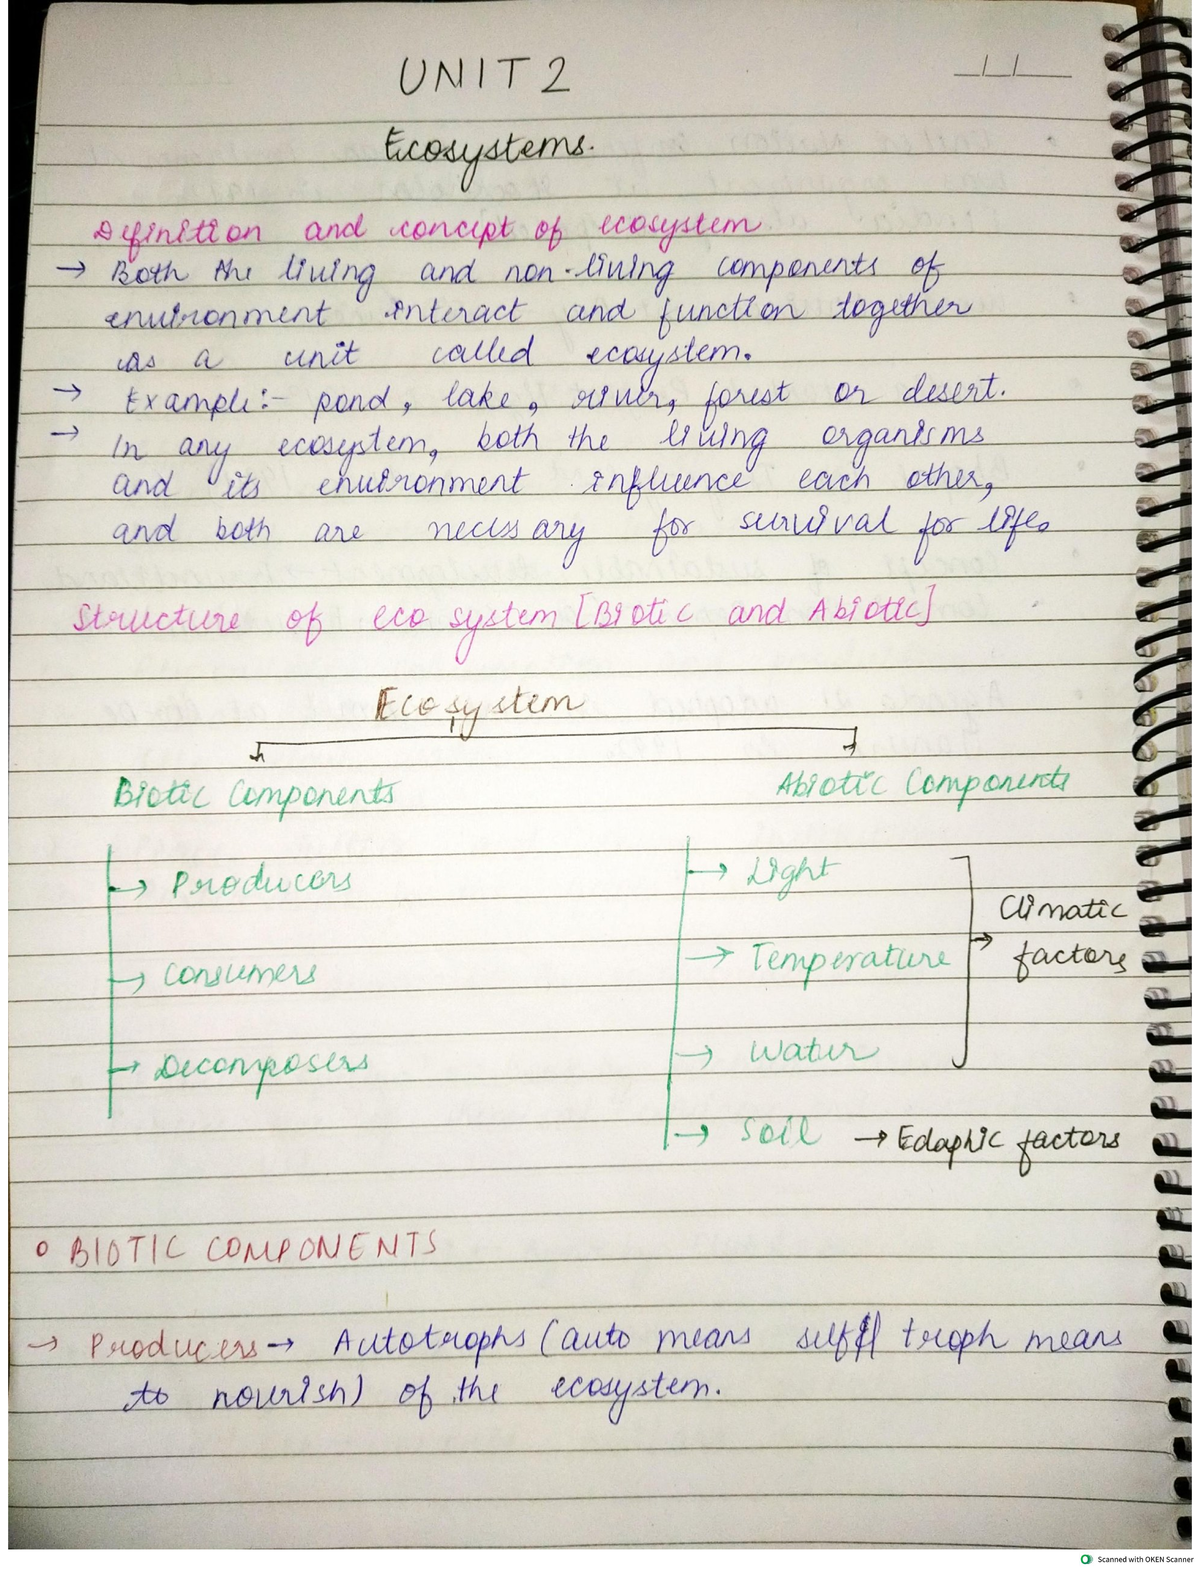 UNIT 2
_/_/__
Ecosystems.
Definition and concept of ecosystem
→ Both the living and non-living components of
environment interact and function together
as a unit called ecosystem.
→ Example:- pond, lake, river, forest or desert.
→ In any ecosystem, both the living organisms
and its environment influence each other,
and both are necessary for survival for life.
Structure of eco system [Biotic and Abiotic]
Ecosystem
Biotic Components
Abiotic Components
→ Producers
→ Consumers
→ Decomposers
→ Light
→ Temperature
→ Water
→ Climatic
factors
→ Soil → Edaphic factors
○ BIOTIC COMPONENTS
→ Producers → Autotrophs (auto means self troph means
to nourish) of the ecosystem.
Scanned with OKEN Scanner